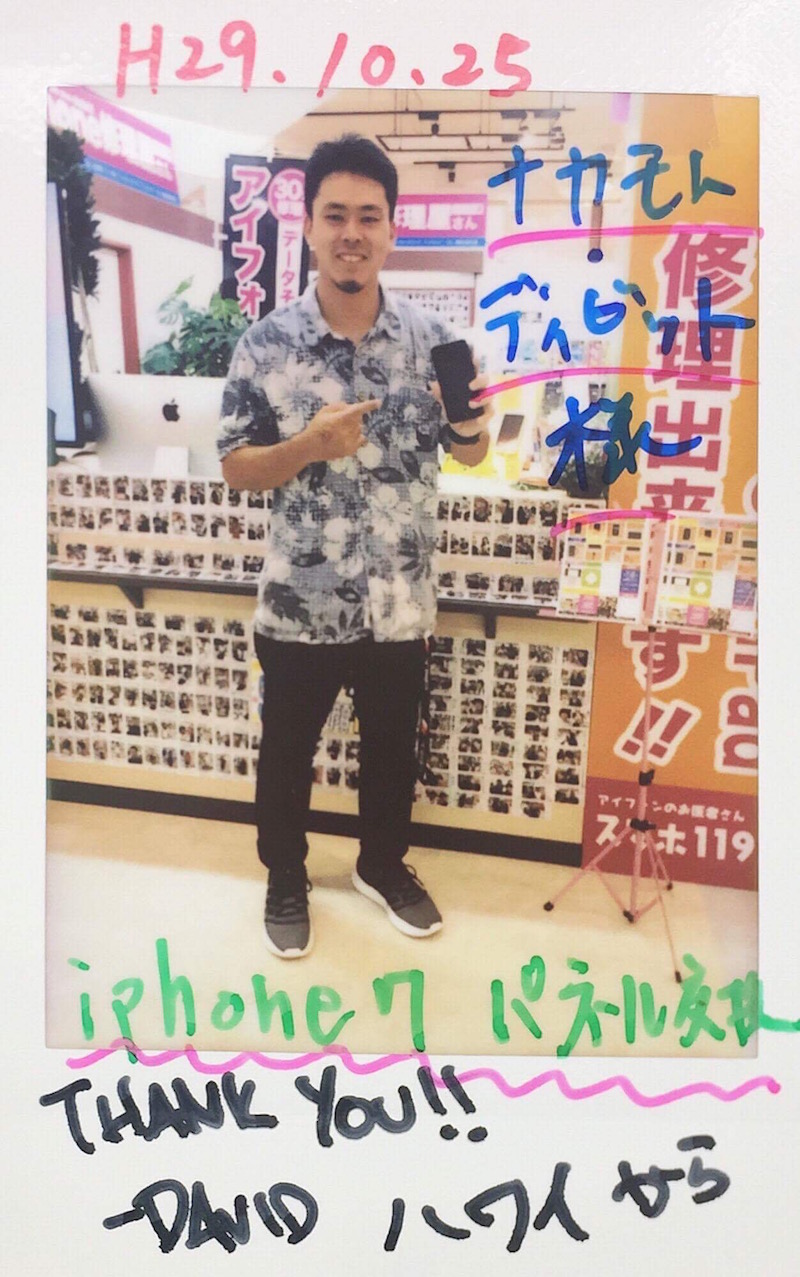 H29.10.25
ナカモト
・
デイビット
様
アイフォ
30
データそ
理屋さん
修理出来
す!!
iPad
アイフォンのお医者さん
スマホ119
iphone7 パネル交換
THANK YOU!!
-DAVID ハワイから